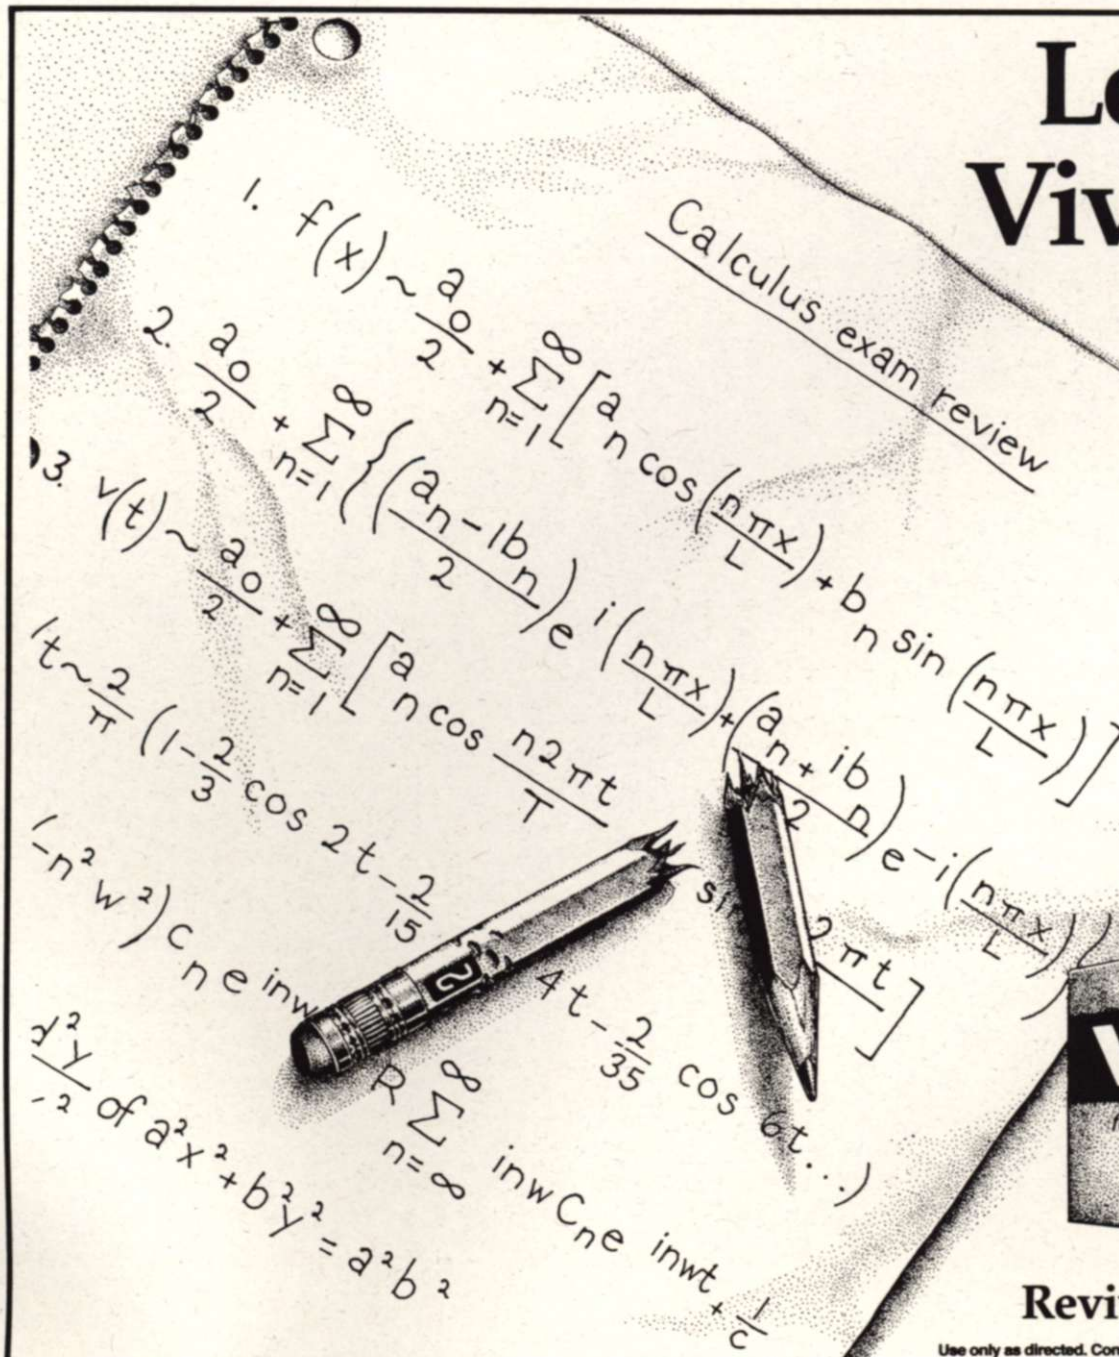 Calculus exam review
1. f(x) ~ a₀/2 + ∑ n=1 ∞ [a n cos (nπx/L) + b n sin (nπx/L)]
2. a₀/2 + ∑ n=1 ∞ {((a n - ib n)/2) e i(nπx/L) + ((a n + ib n)/2) e -i(nπx/L)
3. v(t) ~ a₀/2 + ∑ n=1 ∞ [a n cos n2πt/T si 2πt]
t ~ 2/π (1 - 2/3 cos 2t - 2/15 4t - 2/35 cos 6t...)
(-n² w²) C n e inw R ∑ n=∞ ∞ inw C n e inwt + 1/c
d²y/ ² of a²x² + b²y² = a²b²
2
Revi
Use only as directed. Con